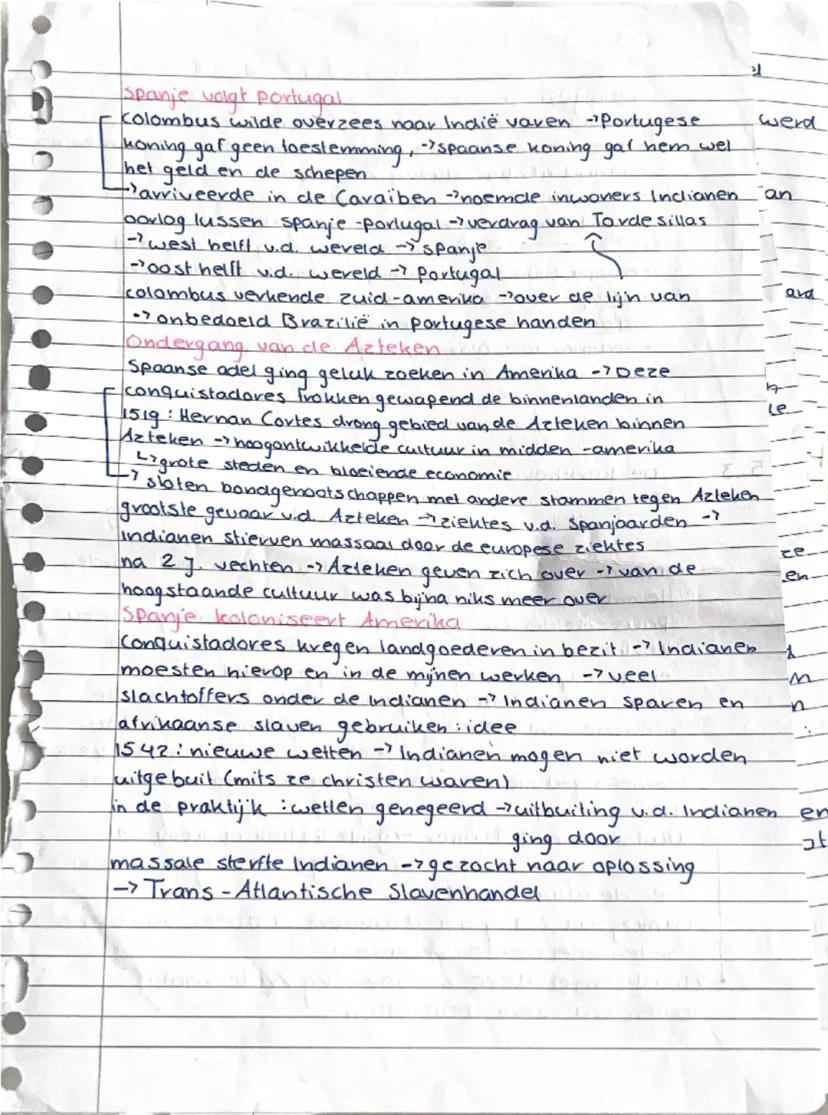 Spanje volgt Portugal
Colombus wilde overzees naar Indië varen → Portugese
koning gaf geen toestemming, → spaanse koning gaf hem wel
het geld en de schepen
→ arriveerde in de Caraïben → noemde inwoners Indianen
oorlog tussen Spanje - Portugal → verdrag van Tordesillas
→ west helft v.d. wereld → Spanje
→ oost helft v.d. wereld → Portugal
Colombus verkende zuid-amerika → over de lijn van
→ onbedoeld Brazilië in Portugese handen
Ondergang van de Azteken
Spaanse adel ging geluk zoeken in Amerika → Deze
conquistadores trokken gewapend de binnenlanden in
1519: Hernan Cortes drong gebied van de Azteken binnen
Azteken → hoogontwikkelde cultuur in midden-amerika
↳ grote steden en bloeiende economie
→ sloten bondgenootschappen met andere stammen tegen Azteken
grootste gevaar v.d. Azteken → ziektes v.d. Spanjaarden →
Indianen stierven massaal door de europese ziektes
na 2 j. vechten → Azteken geven zich over → van de
hoogstaande cultuur was bijna niks meer over
Spanje koloniseert Amerika
Conquistadores kregen landgoederen in bezit → Indianen
moesten hierop en in de mijnen werken → veel
slachtoffers onder de Indianen → Indianen sparen en
afrikaanse slaven gebruiken: idee
1542: nieuwe wetten → Indianen mogen niet worden
uitgebuit (mits ze christen waren)
in de praktijk: wetten genegeerd → uitbuiting v.d. Indianen
ging door
massale sterfte Indianen → gezocht naar oplossing
→ Trans-Atlantische Slavenhandel
werd
an
ard
le
ze
en
n
en